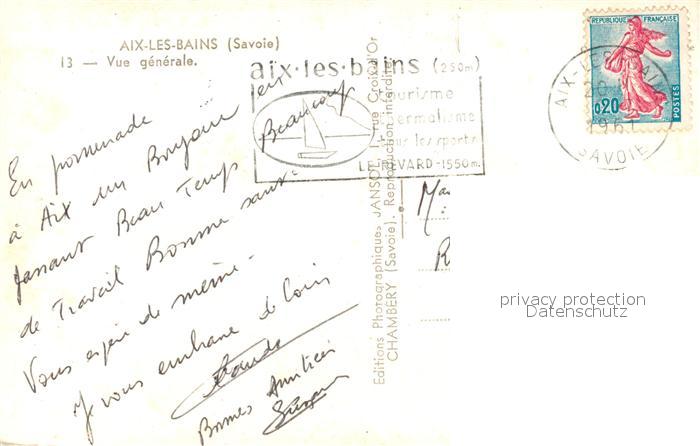 AIX-LES-BAINS (Savoie)
13 — Vue générale.
aix·les·bains (250m)
tourisme
thermalisme
tous les sports
LE REVARD-1550m.
REPUBLIQUE FRANÇAISE
0,20
POSTES
AIX-LES-BAINS
SAVOIE
En promenade
à Aix un Bonjour en
passant Beau Temps Beaucoup
de Travail Bonne santé
Vous espère de même.
Je vous embrasse de loin
Bonnes Amitiés
Editions Photographiques JANSOL, 1, rue Croix d'Or
CHAMBÉRY (Savoie). Reproduction interdite.
R
privacy protection
Datenschutz